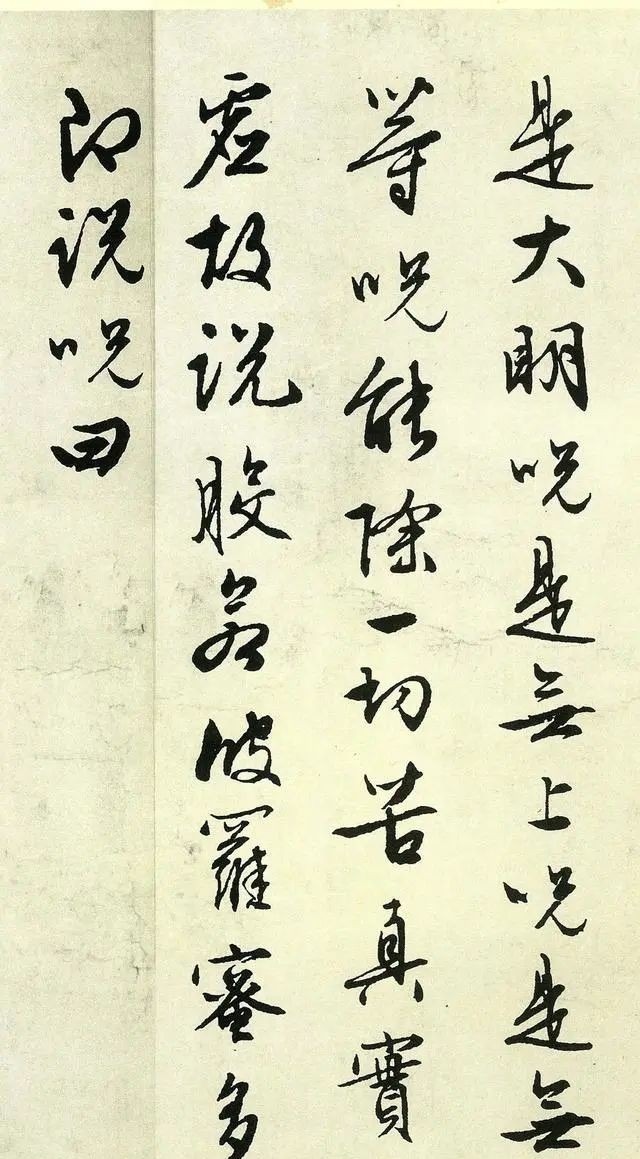 是大明呪是無上呪是無
等呪能除一切苦真實
虛故說般若波羅蜜多
即說呪曰